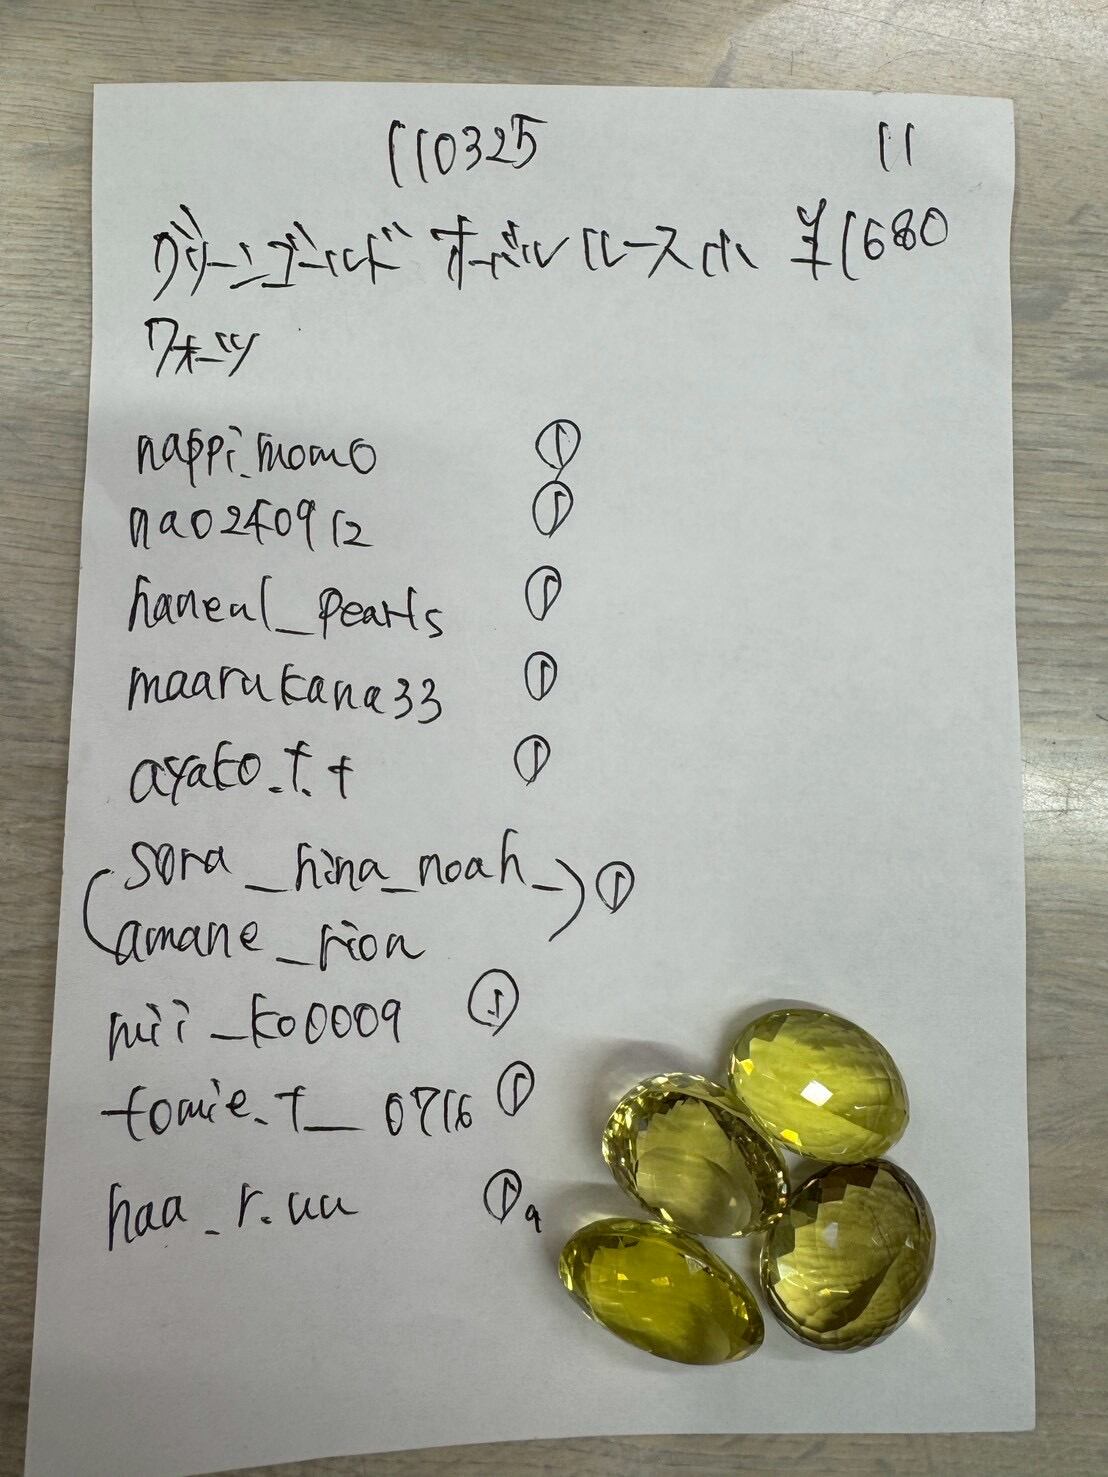 110325 11
グリーンゴールド オーバルルース小 ¥1680
クォーツ
nappi_momo ①
nao240912 ①
haneul_pearls ①
maarukana33 ①
ayako.t.t ①
(sora_hina_noah_) ①
amane_rion
mii_ko0009 ①
tomie.t__0716 ①
haa_r.uu ①9